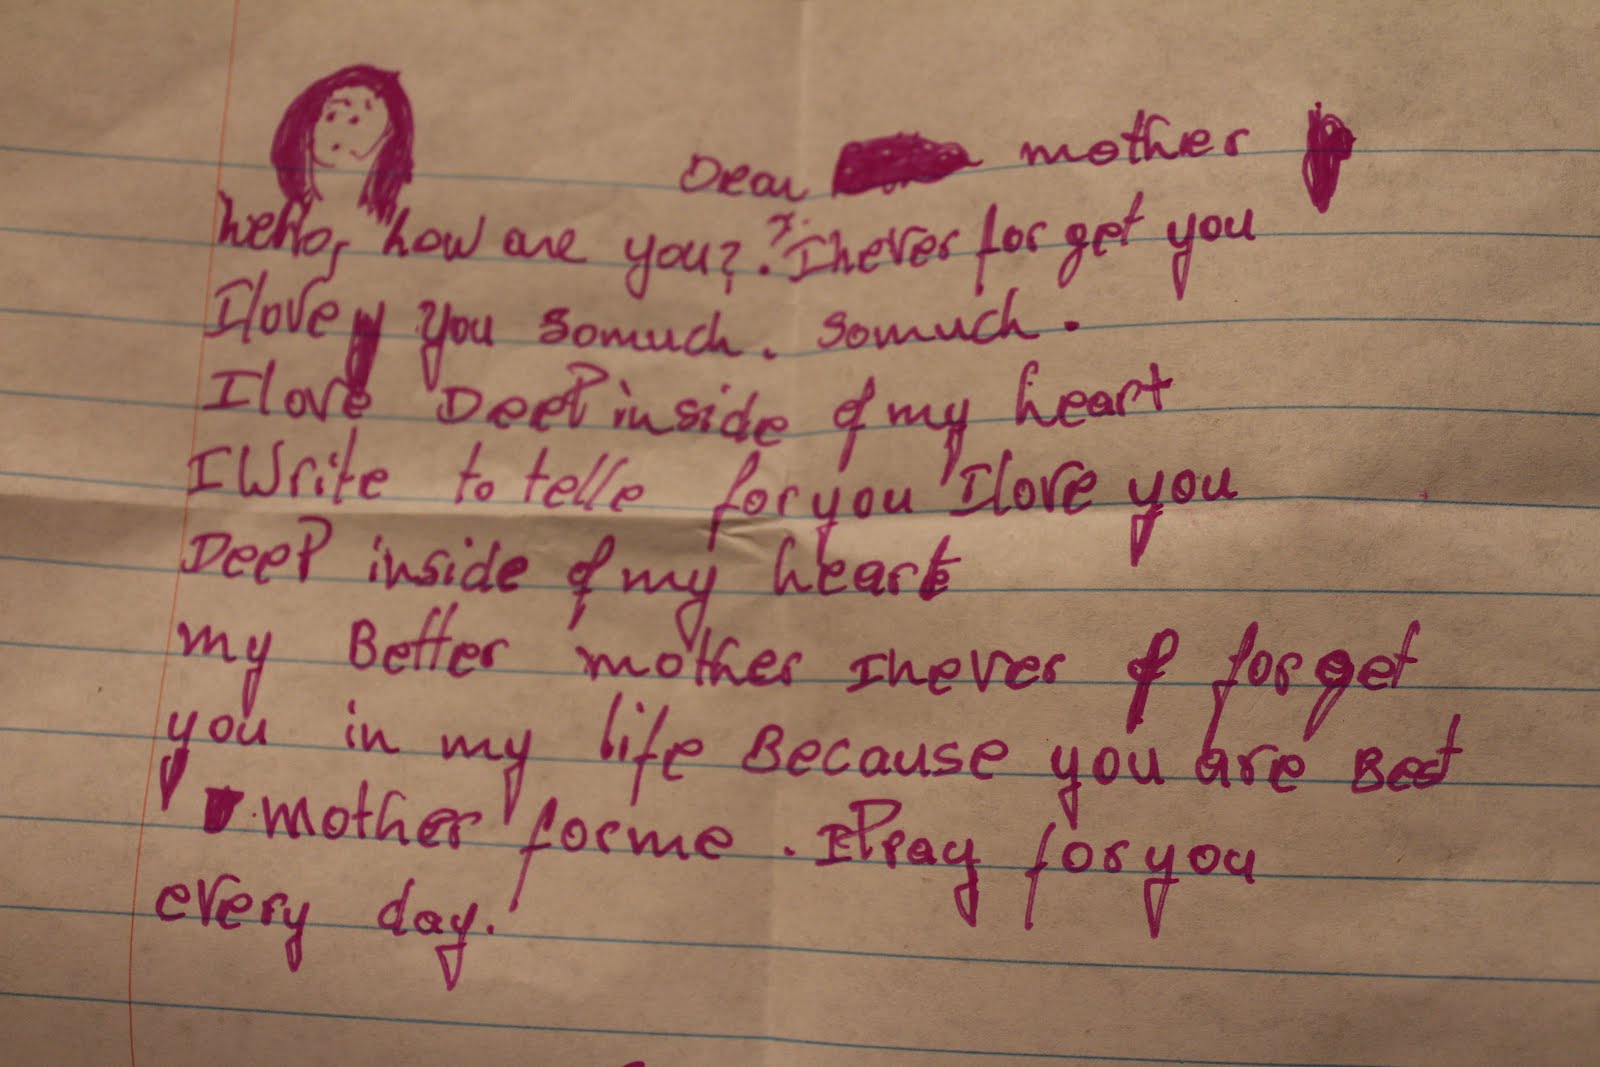 Dear mother
hello, how are you? I never for get you
I love you somuch. somuch.
I love DeeP inside of my heart
I Write to telle for you I love you
DeeP inside of my heart
my Better mother I never for get
you in my life Because you are Best
mother for me. I Pray for you
every day.